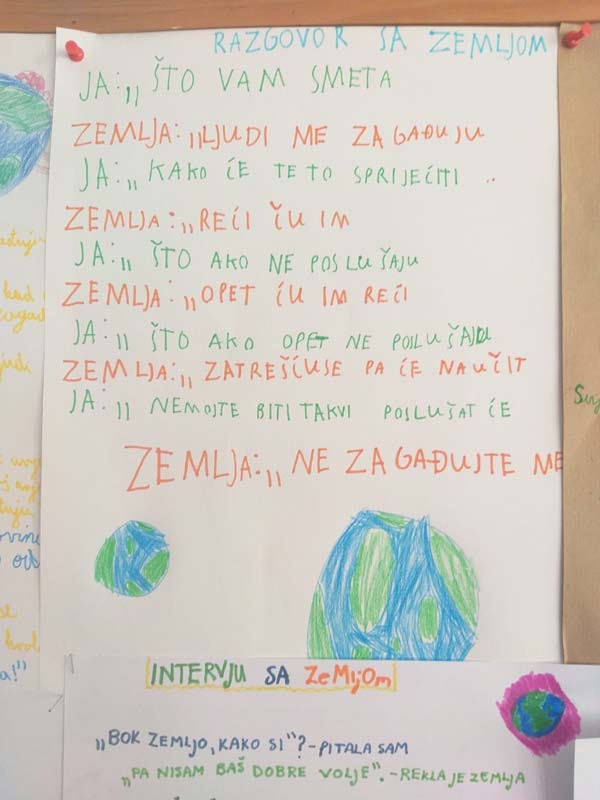 RAZGOVOR SA ZEMLJOM
JA:,, ŠTO VAM SMETA
ZEMLJA:,,LJUDI ME ZAGAĐUJU
JA:,, KAKO ĆE TE TO SPRIJEĆITI ..
ZEMLJA:,,REĆI ČU IM
JA:,, ŠTO AKO NE POSLUŠAJU
ZEMLJA:,,OPET ĆU IM REĆI
JA:,, ŠTO AKO OPET NE POSLUŠAJU
ZEMLJA:,, ZATREŠĆUSE PA ĆE NAUČIT
JA:,, NEMOJTE BITI TAKVI POSLUŠAT ĆE
ZEMLJA:,, NE ZAGAĐUJTE ME
INTERVJU SA ZeMljOm
,,BOK ZEMLJO, KAKO SI"?-PITALA SAM
,,PA NISAM BAŠ DOBRE VOLJE".-REKLA JE ZEMLJA